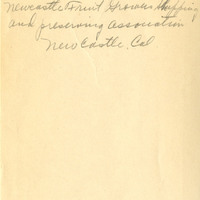 Newcastle Fruit Growers Shipping
and preserving association
New Castle, Cal